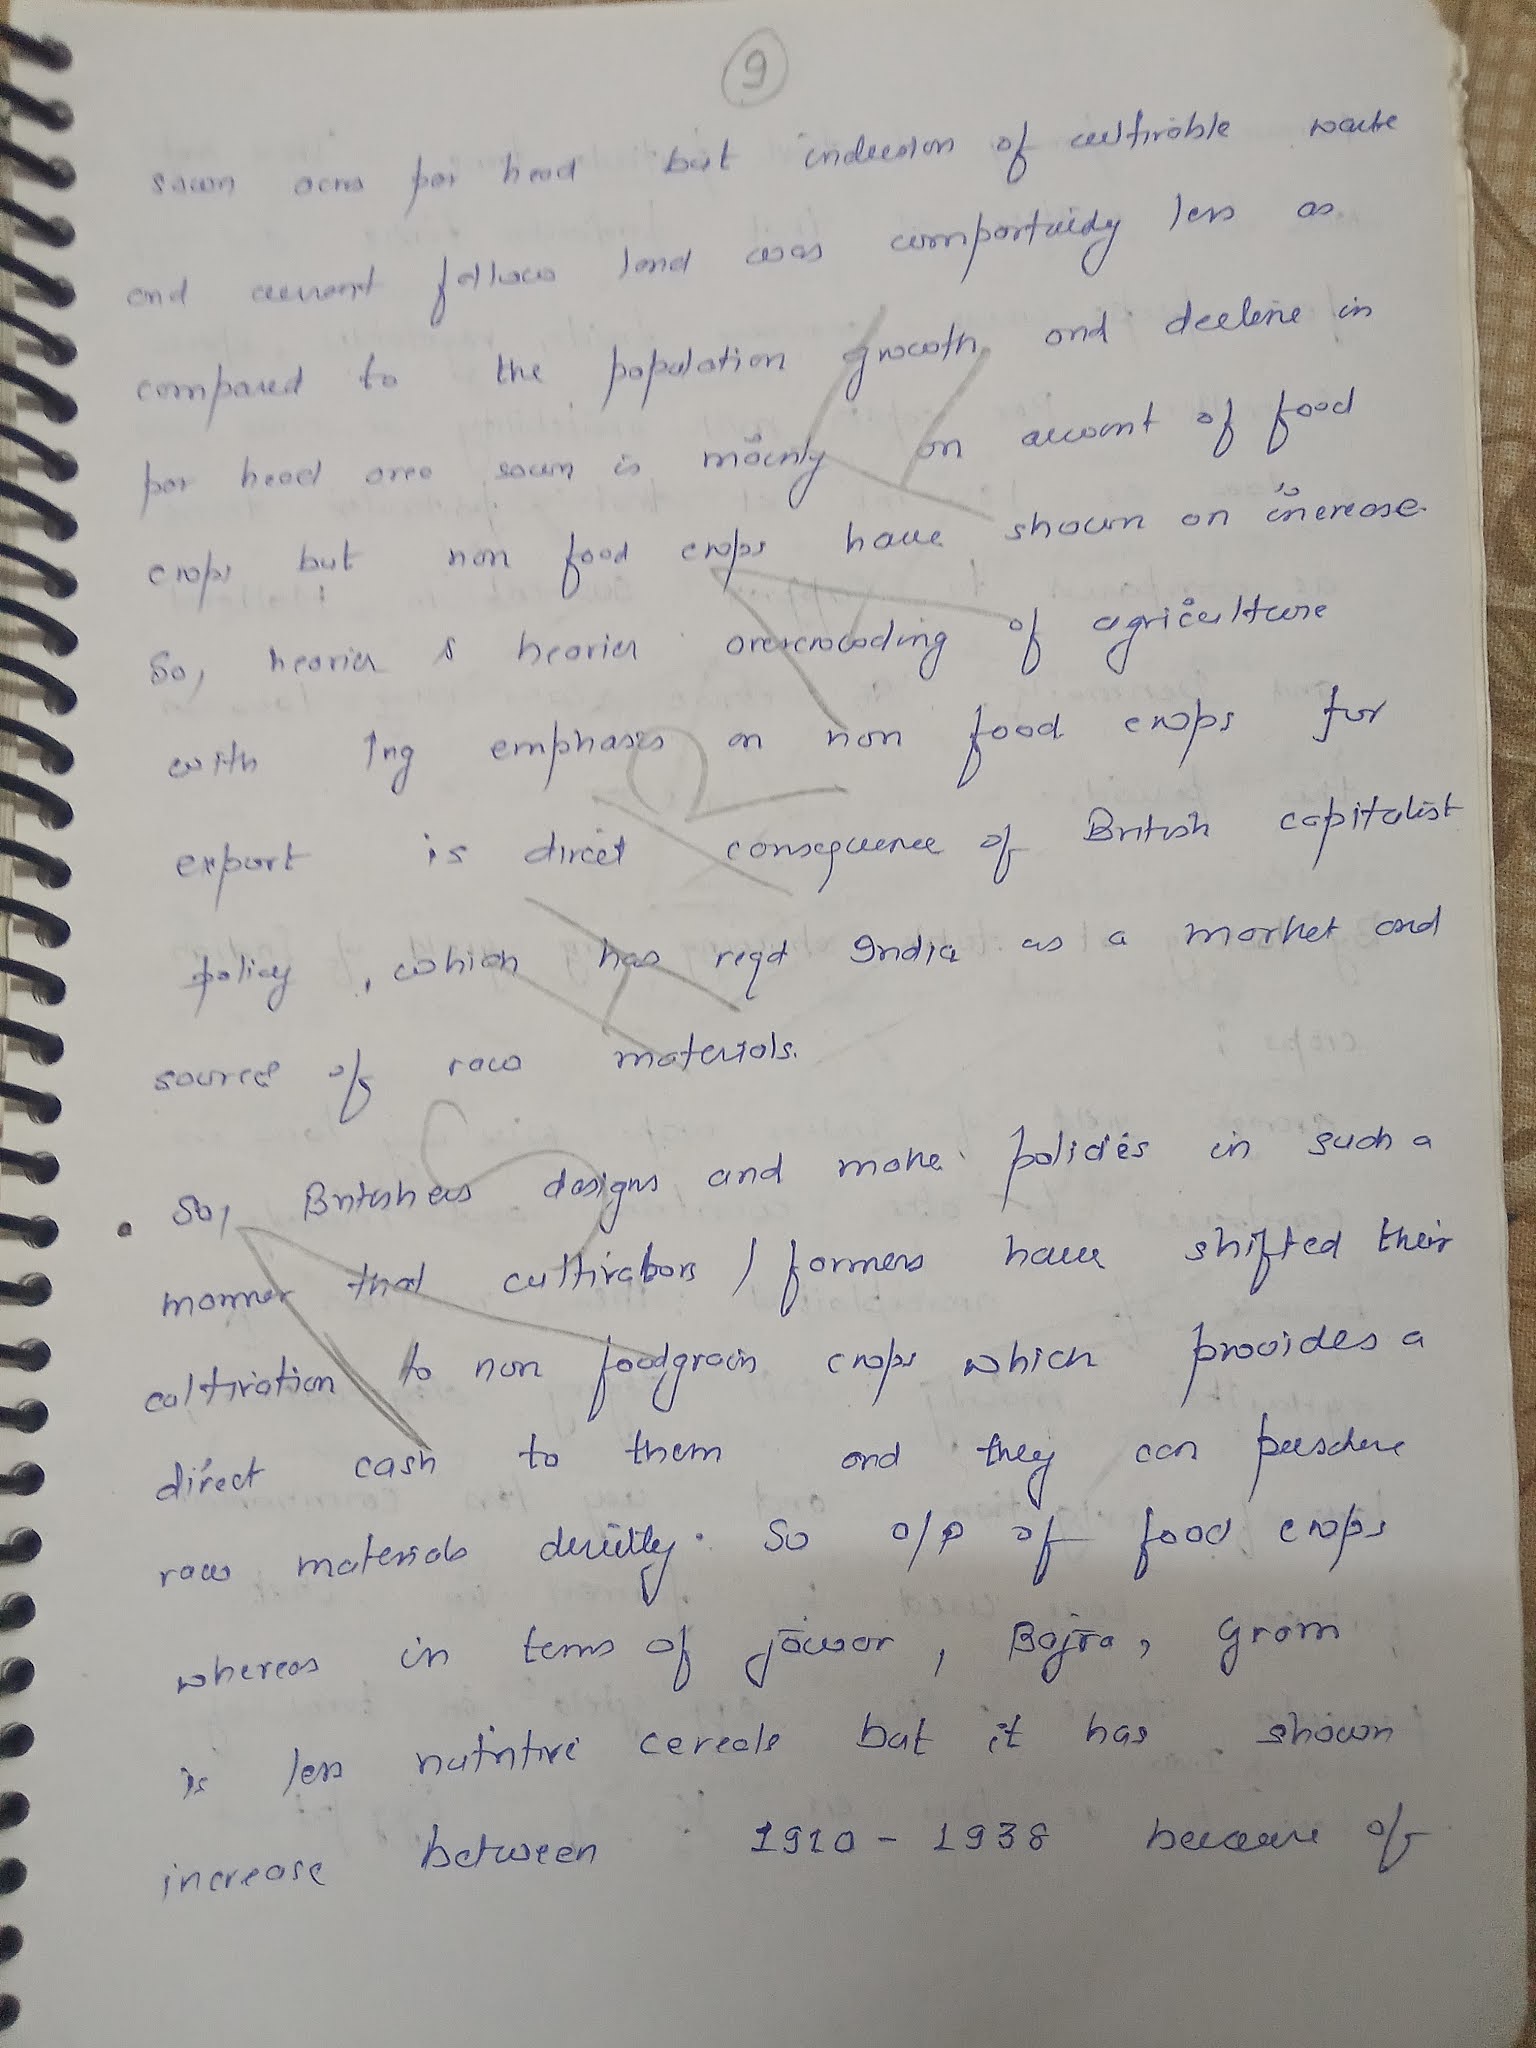 9
sown acrs per head but inclusion of cultivable waste
and current fallow land was comportaidy less as
compared to the population growth and decline in
per head area sown is mainly on account of food
crops but non food crops have shown an increase.
So, heavier & heavier overcrowding of agriculture
with ↑ng emphasis on non food crops for
export is direct consequence of British capitalist
policy, which has reqd India as a market and
source of raw materials.
• So, Britishers designs and make policies in such a
manner that cultivators / farmers have shifted their
cultivation to non foodgrain crops which provides a
direct cash to them and they can
raw materials directly. So o/p of food crops
whereas in terms of jowar, Bajra, gram
is less nutritive cereals but it has shown
increase between 1910 - 1938 because of